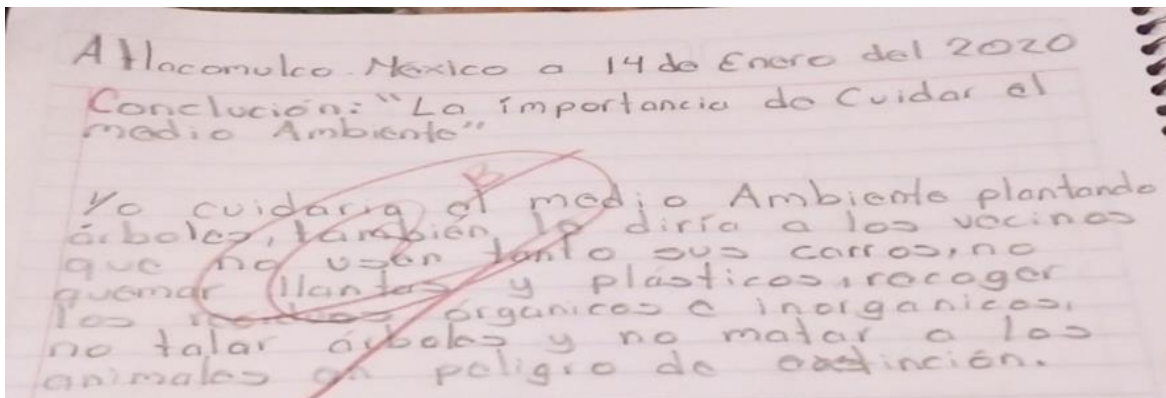 Atlacomulco. México a 14 de Enero del 2020
Conclución: "La importancia de Cuidar el
medio Ambiente"
B
Yo cuidaria el medio Ambiente plantando
árboles, también le diría a los vecinos
que no usen tanto sus carros, no
quemar llantas y plásticos, recoger
los orgánicos e inorganicos,
no talar árboles y no matar a los
animales en peligro de extinción.